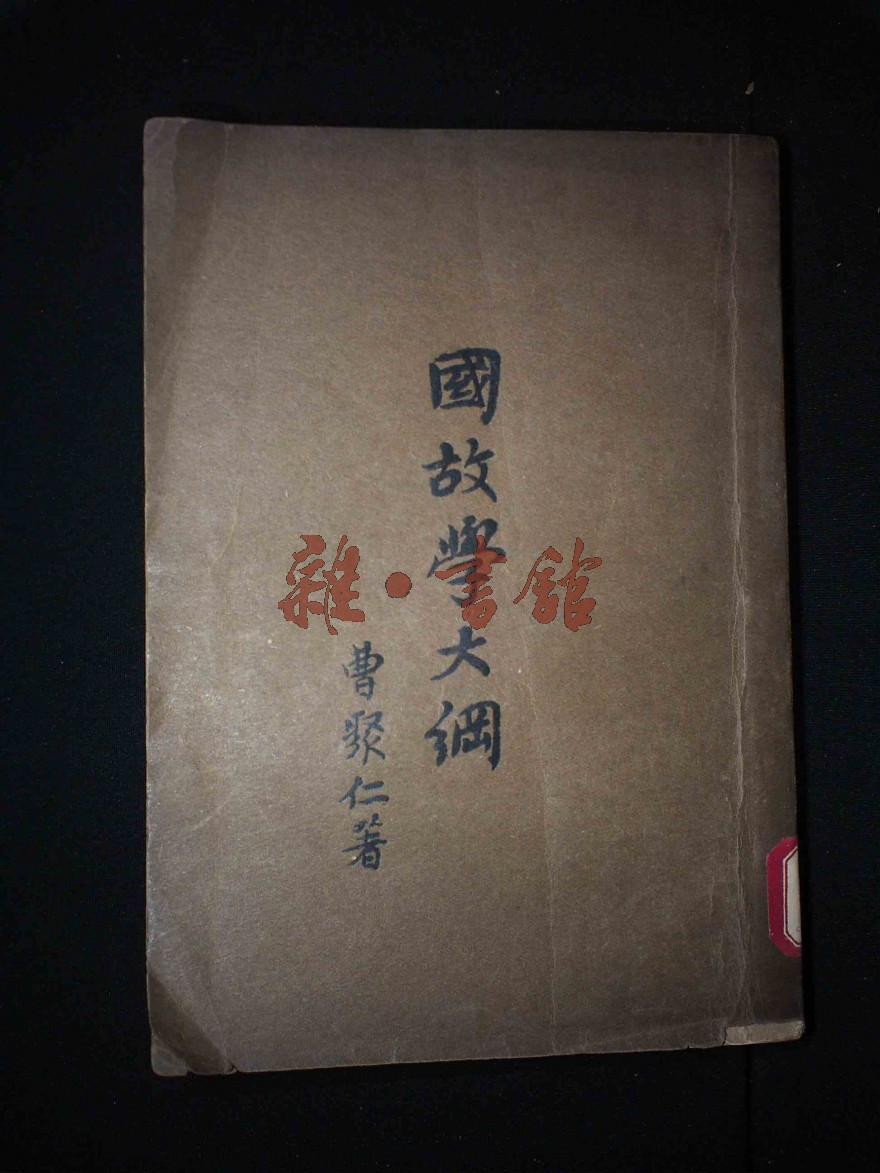 國故學大綱
曹聚仁著
雜·書館